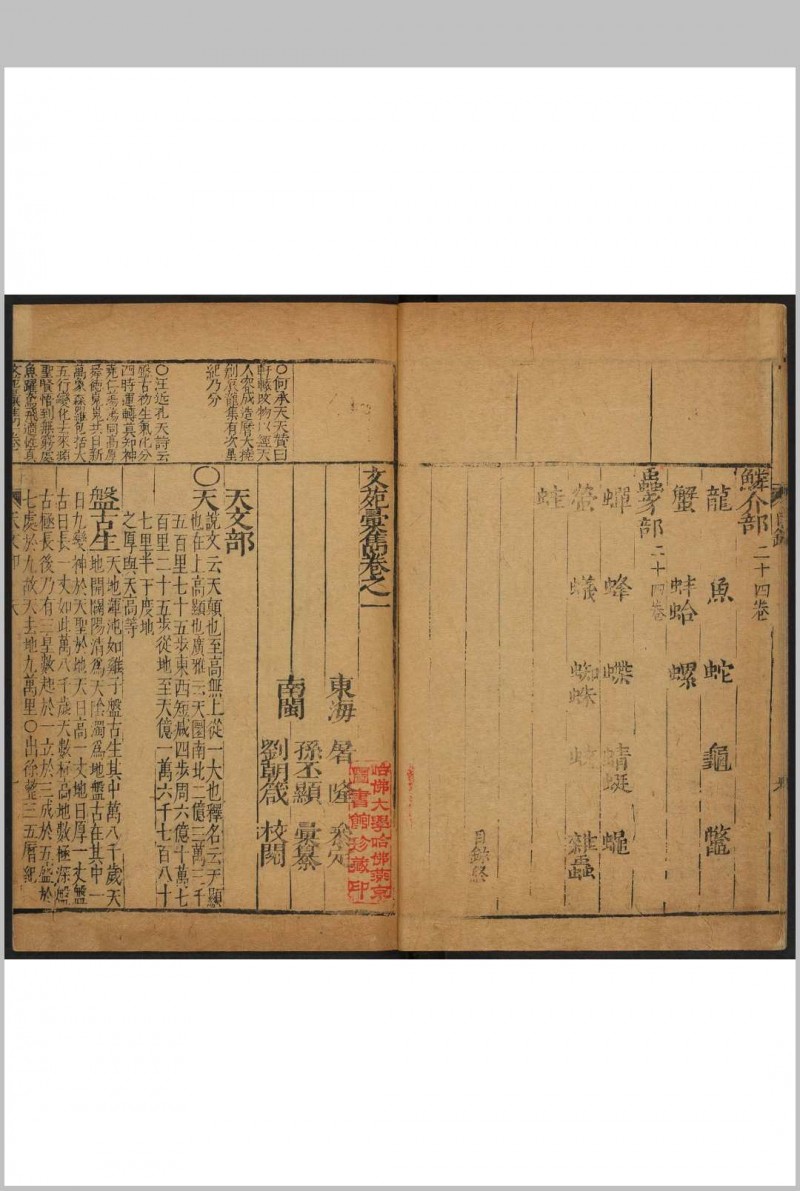 鱗介部二十四卷
龍 魚 蛇 龜 鱉
蟹 蚌蛤 螺
蟲豸部二十四卷
蟬 蜂 蝶 蜻蜓 蠅
螢 蟻 蜘蛛 雜蟲
蛙
目錄終
文苑彙雋卷之一
東海 屠隆 叅定
孫丕顯 彙纂
南閩
劉朝箴 校閱
天文部
〇天說文云天顛也至高無上從一大也釋名云天顯
也在上高顯也廣雅云天圜南北二億三萬三千
五百里七十五步東西短減四步周六億十萬七
百里二十五步從地至天億一萬六千七百八十
七里半下度地
之厚與天高等
盤古生天地渾沌如雞子盤古生其中萬八千歲天
地開闢陽清為天陰濁為地盤古在其中一
日九變神於天聖於地天日高一丈地日厚一丈盤
古日長一丈如此萬八千歲天數極高地數極深盤
古極長後乃有三皇數起於一立於三成於五盛於
七處於九故天去地九萬里〇出徐整三五曆紀
〇何承天天贊曰
軒轅改物以經天
人容成造曆大撓
創辰龍集有次星
紀乃分
〇汪近孔天詩云
盤古初生氣化分
四時運轉真如神
堯仁蕩蕩同高厚
舜德巍巍共日新
萬象森羅包括大
五行變化去來頻
聖賢悟到無窮處
魚躍鳶飛適性真
哈佛大學哈佛燕京
圖書館珍藏印